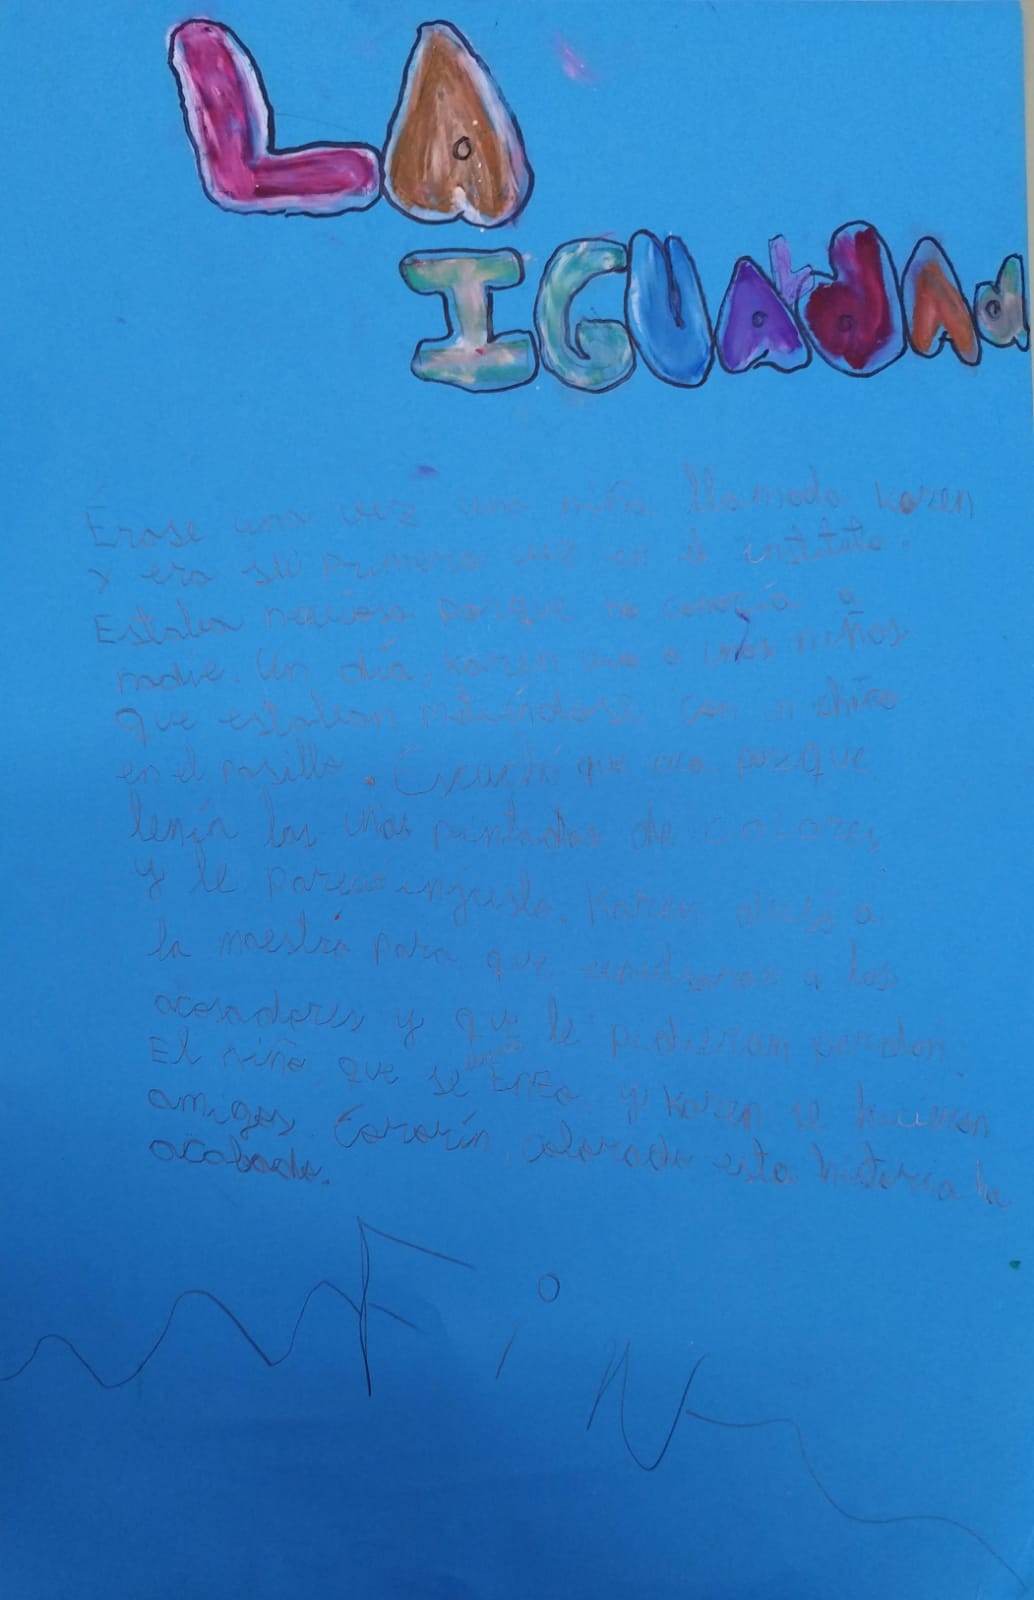 LA
IGUALDAD
Érase una vez una niña llamada Karen
y era su primera vez en el instituto.
Estaba nerviosa porque no conocía a
nadie. Un día, Karen vio a unos niños
que estaban metiéndose con un chico
en el pasillo. Escuchó que era porque
tenía las uñas pintadas de colores
y le pareció injusto. Karen avisó a
la maestra para que expulsaran a los
acosadores y que le pidieran perdón.
El niño, que se llamaba Enzo, y Karen se hicieron
amigos. Cororín, colorado esta historia ha
acabado.
Fin